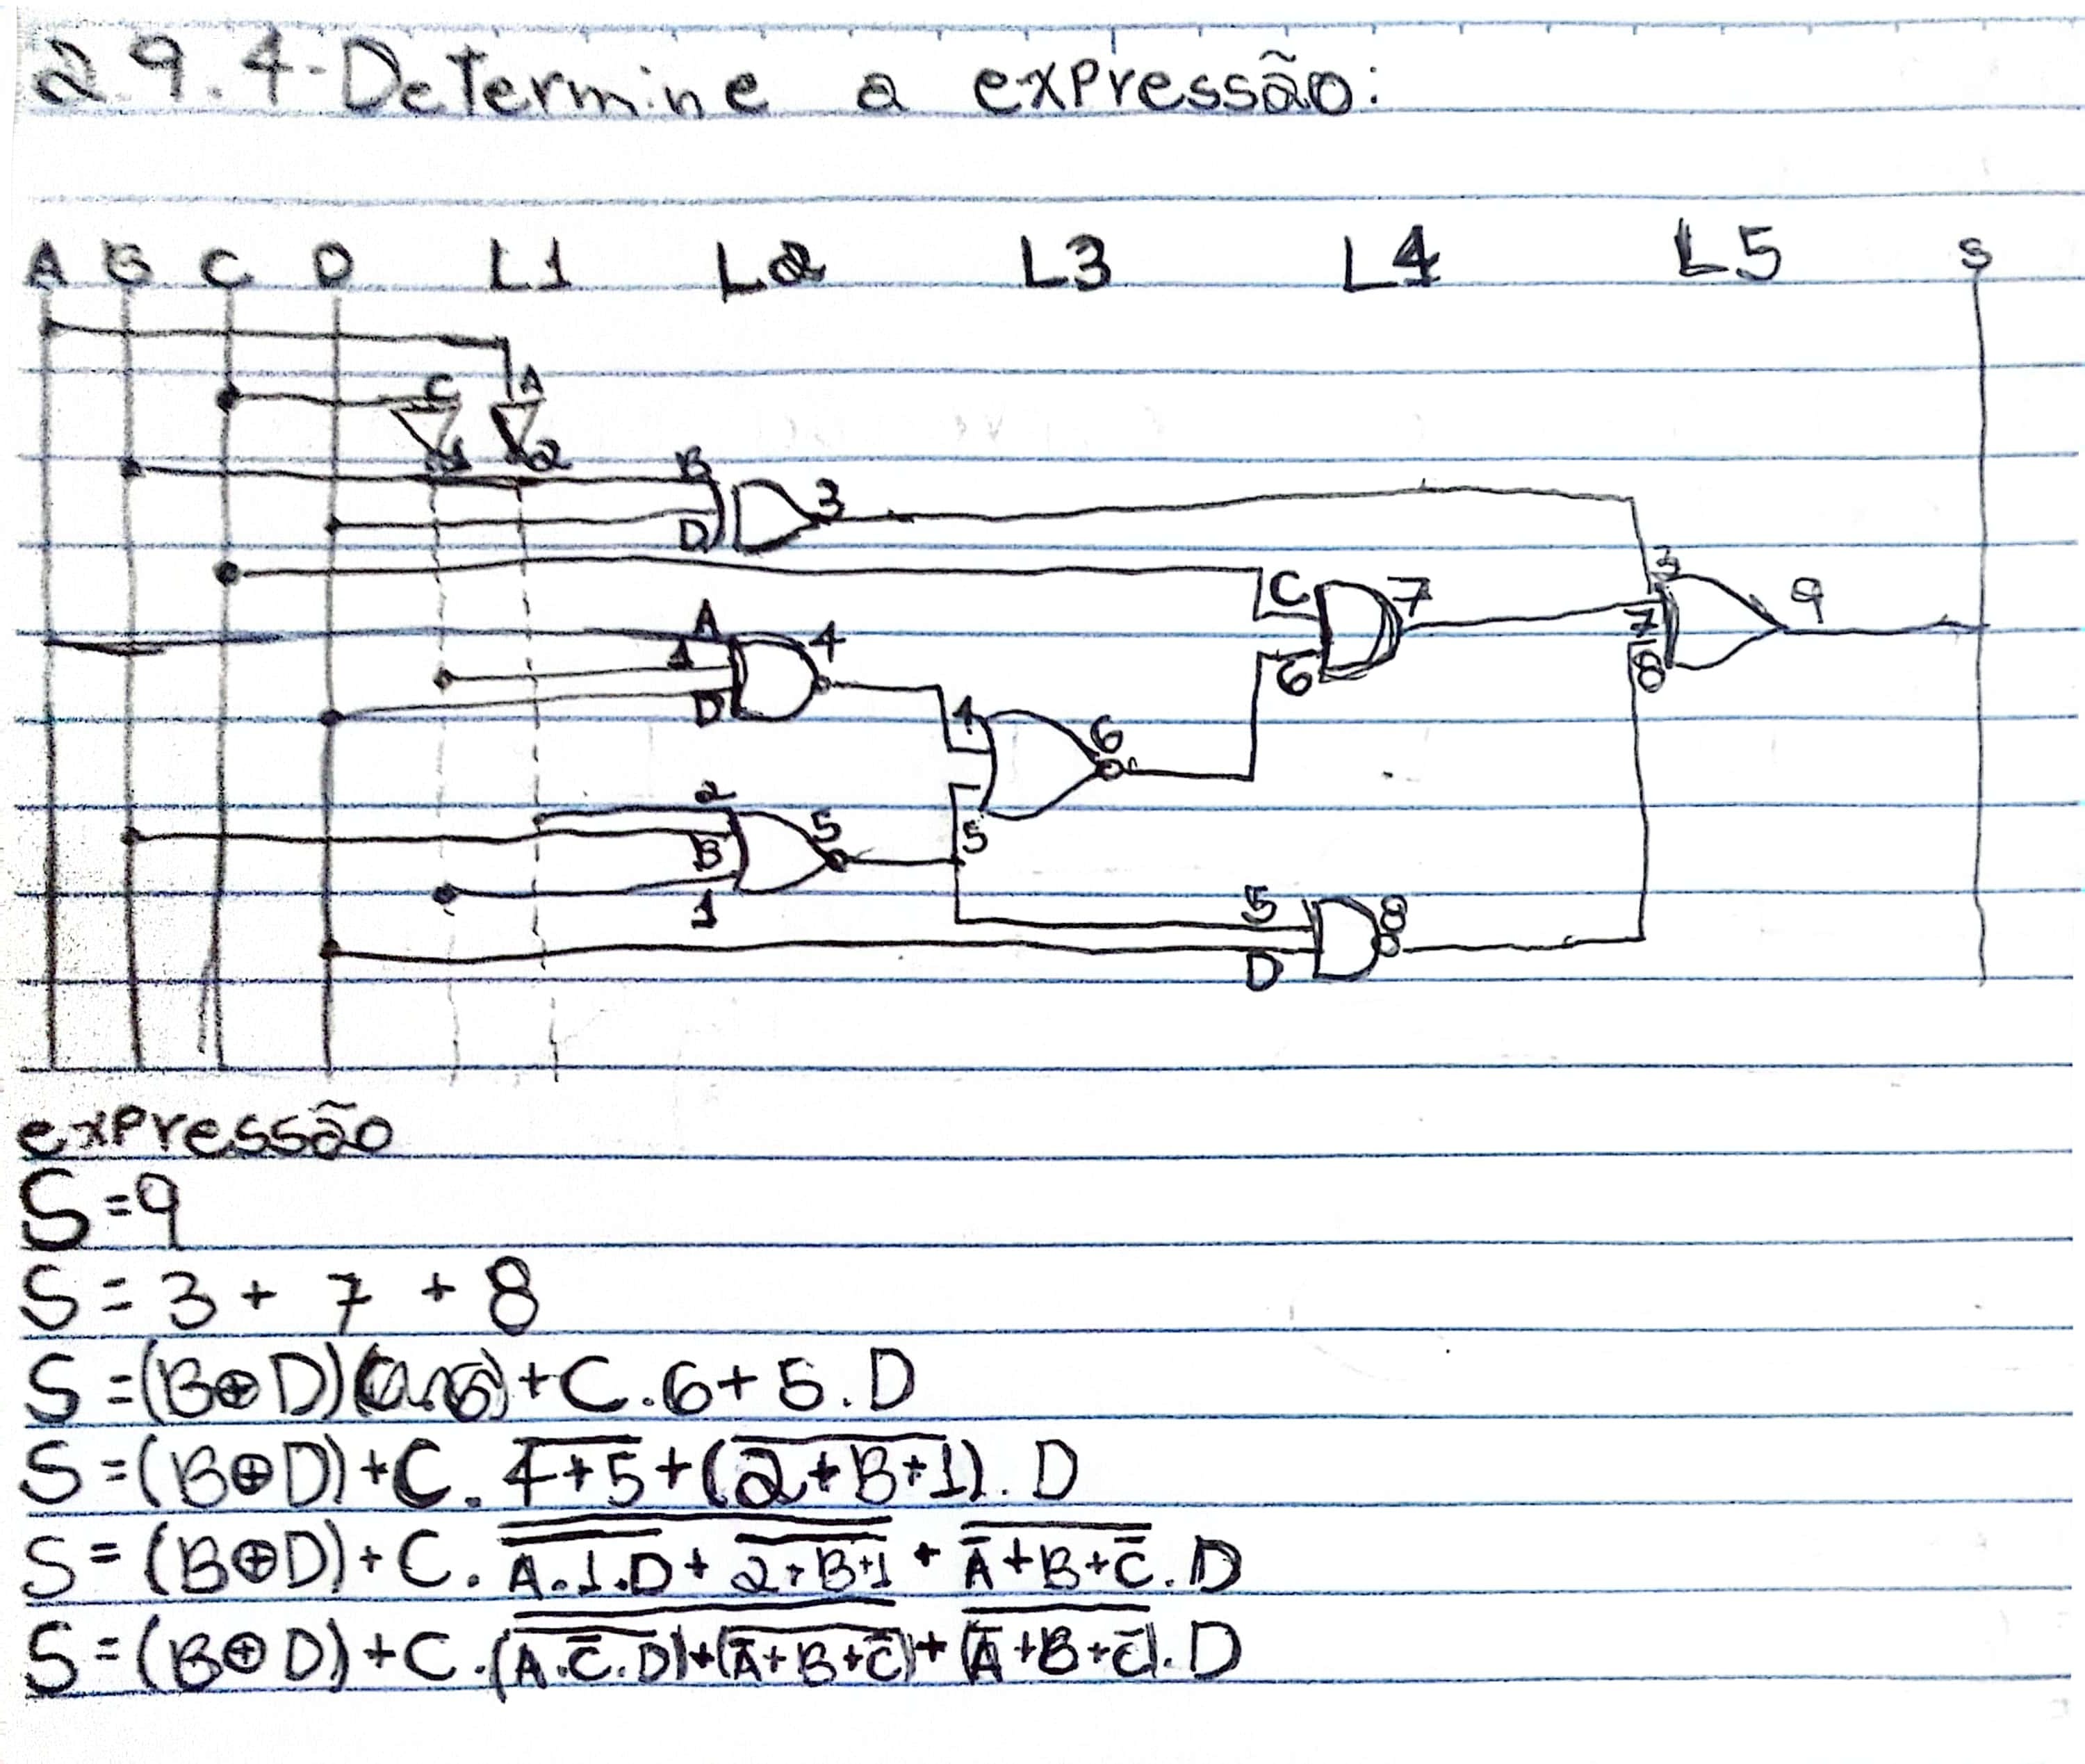 2.9.4-Determine a expressão:
A B C D L1 L2 L3 L4 L5 S
C A
1 2
B
D 3
3
C 7
7 9
A 4
1
D
6
8
4 6
2
B 5
5
1
5 8
D
expressão
S=9
S= 3 + 7 + 8
S =(B⊕D) +C.6+5.D
S =(B⊕D)+C. \overline{4+5}+(\overline{2+B+1}).D
S = (B⊕D)+C. \overline{\overline{A.1.D}+\overline{2+B+1}} + \overline{\overline{A}+B+\overline{C}}.D
S =(B⊕D)+C.\overline{(\overline{A.\overline{C}.D})+(\overline{\overline{A}+B+\overline{C}})}+(\overline{\overline{A}+B+\overline{C}}).D